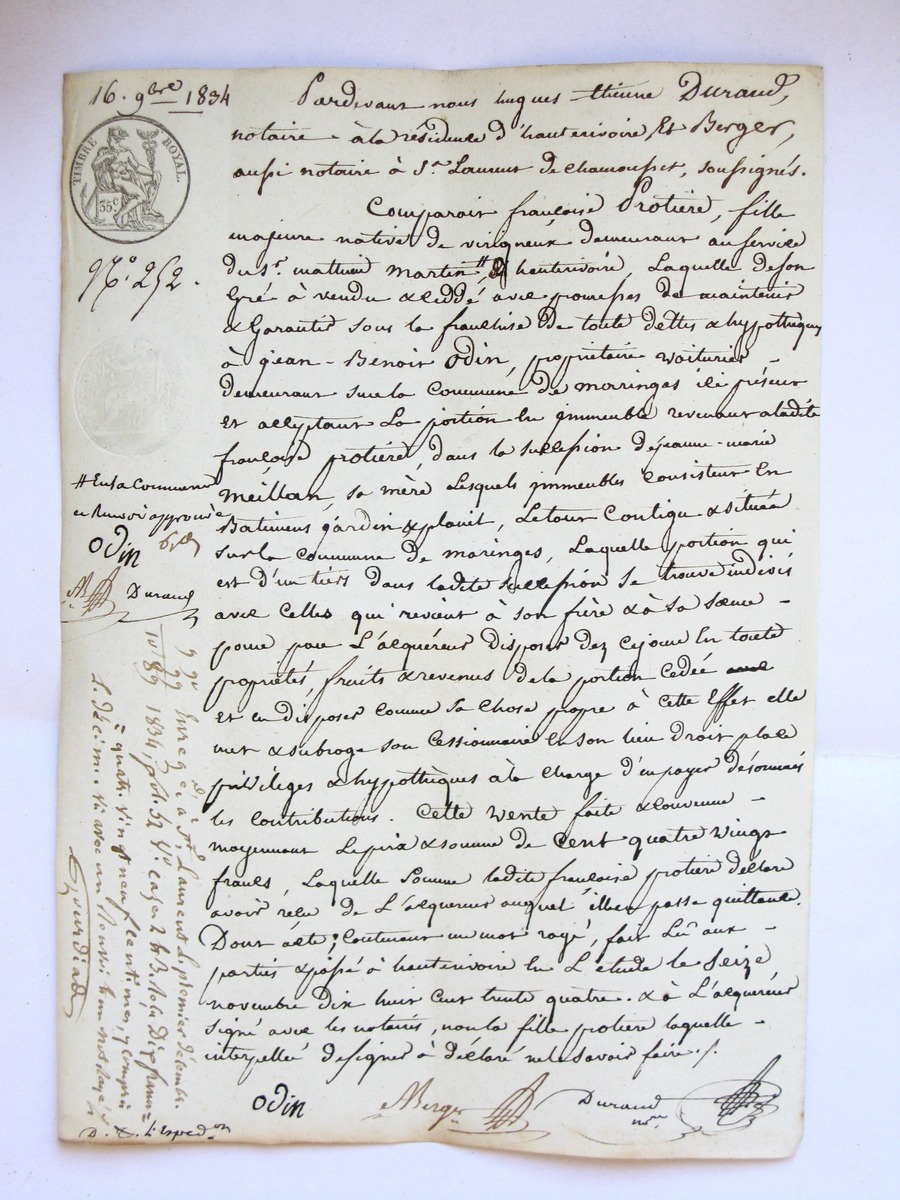 16. 9bre 1834
TIMBRE ROYAL.
35 c
N.° 252.
Pardevant nous hugues-étienne Durand,
notaire à la résidence d'hauterivoire Et Berger,
aussi notaire à St. Laurent de chamousset, soussignés.
Comparait françoise Protière, fille
majeure native de virigneux demeurant au service
du Sr. mathieu martin # d'hauterivoire, Laquelle de son
Gré à vendu & cèddé avec promesses de maintenir
& Garantir sous la franchise de toute dettes & hypothèques
à jean-Benoit Odin, propriétaire voiturier -
demeurant sur la commune de maringes ici présent
et acceptant La portion en immeuble revenant a ladite
françoise protière, dans la succession de jeanne-marie
meillan, sa mère Lesquels immeubles consistent en
Batimens jardin & , Le tout contigu & située
sur la commune de maringes, Laquelle portion qui
est d'un tiers dans ladite succession se trouve indivis
avec celles qui revient à son frère & à sa sœur -
pour par L'acquéreur disposer dez ce jour En toute
propriétés, fruits & revenus de la portion cedée
Et en disposer comme sa chose propre à cette Effet elle
met & subroge son cessionnaire en son lieu droit place
priviléges & hypothèques à la charge d'en payer désormais
les contributions. Cette vente faite & convenue -
moyennant Le prix & somme de cent quatre vingt
francs, Laquelle somme ladite françoise protière déclare
avoir reçu de L'acquereur auquel elle en passe quittance.
Dont acte; contenant un mot rayé, fait Lû aux -
parties & passé à hauterivoire en L'étude le seize
novembre dix huit cent trente quatre. & à L'acquéreur
signé avec les notaires, non la fille protière laquelle -
interpellé de signer à déclaré ne le savoir faire ./.
Odin
Berger
Durand
nre
# En sa Commune
ce Renvoi approuvé
Odin
Durand
Enreg é à St. Laurent Le premier décembre
1834, fol. 52 Vo. case 2
quatre vingt neuf centimes, y compris
L. décime
D. & L. Exped.on